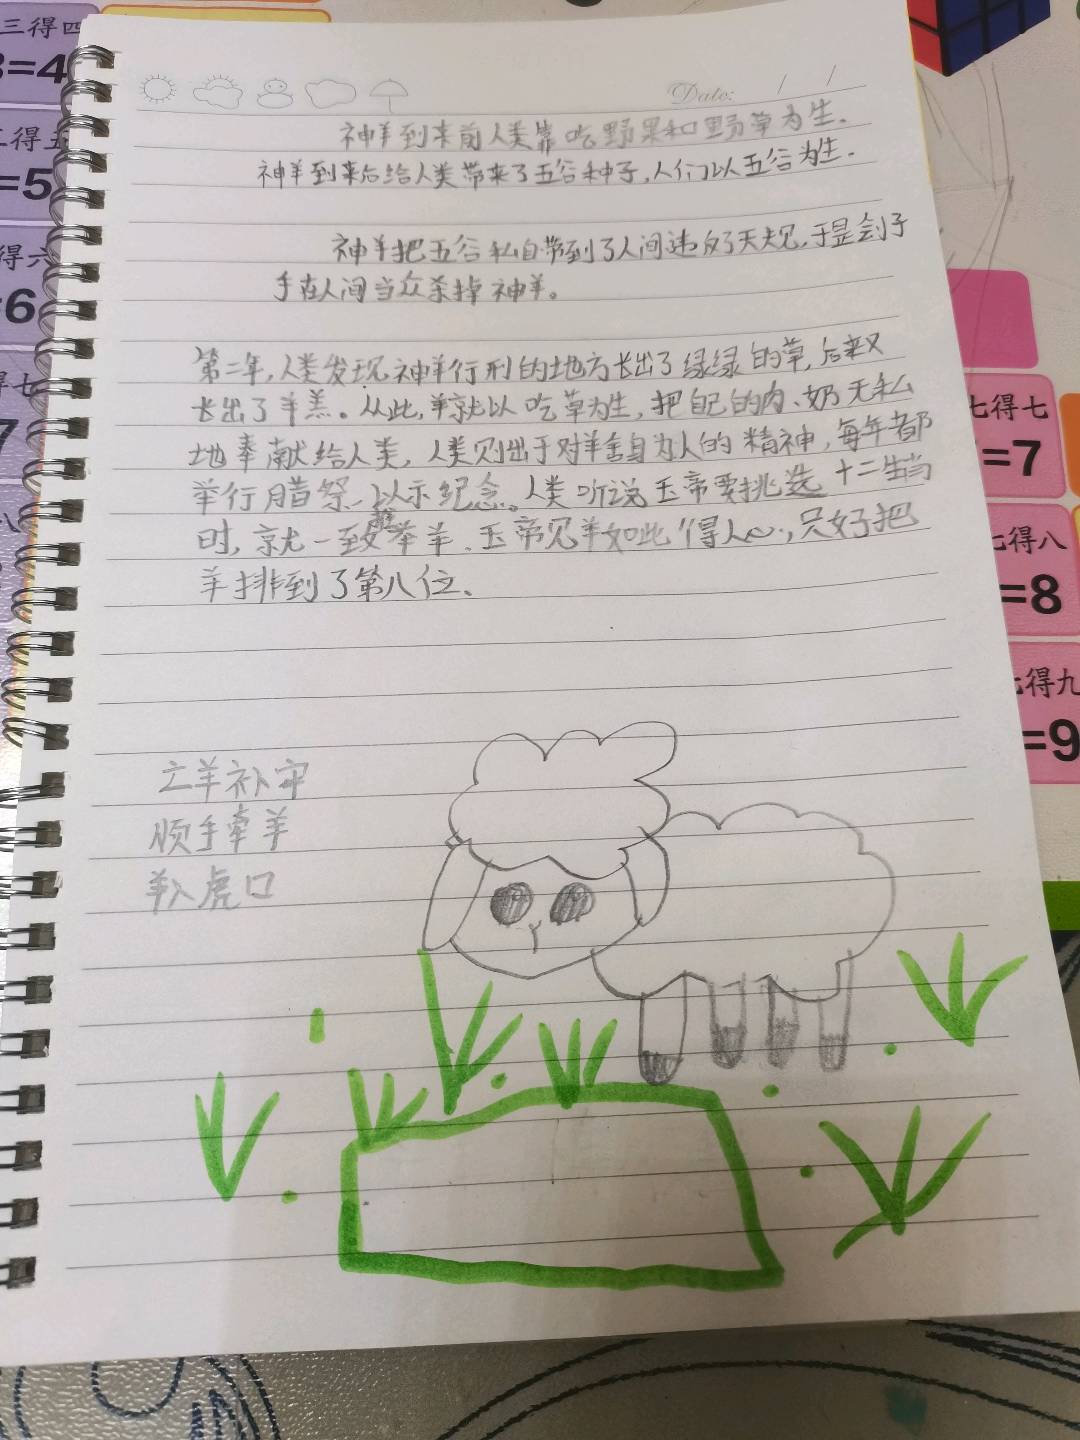 三得四
3=4
得五
=5
得六
=6
得七
7
Date: / /
神羊到来前人类靠吃野果和野草为生.
神羊到来后给人类带来了五谷种子,人们以五谷为生.
神羊把五谷私自带到了人间违反了天规,于是刽子
手在人间当众杀掉神羊。
第二年,人类发现神羊行刑的地方长出了绿绿的草,后来又
长出了羊羔。从此,羊就以吃草为生,把自己的肉、奶无私
地奉献给人类,人类则出于对羊舍身为人的精神,每年都
举行腊祭,以示纪念。人类听说玉帝要挑选十二生肖
时,就一致推举羊.玉帝见羊如此得人心,只好把
羊排到了第八位.
亡羊补牢
顺手牵羊
羊入虎口
七得七
=7
七得八
=8
七得九
=9